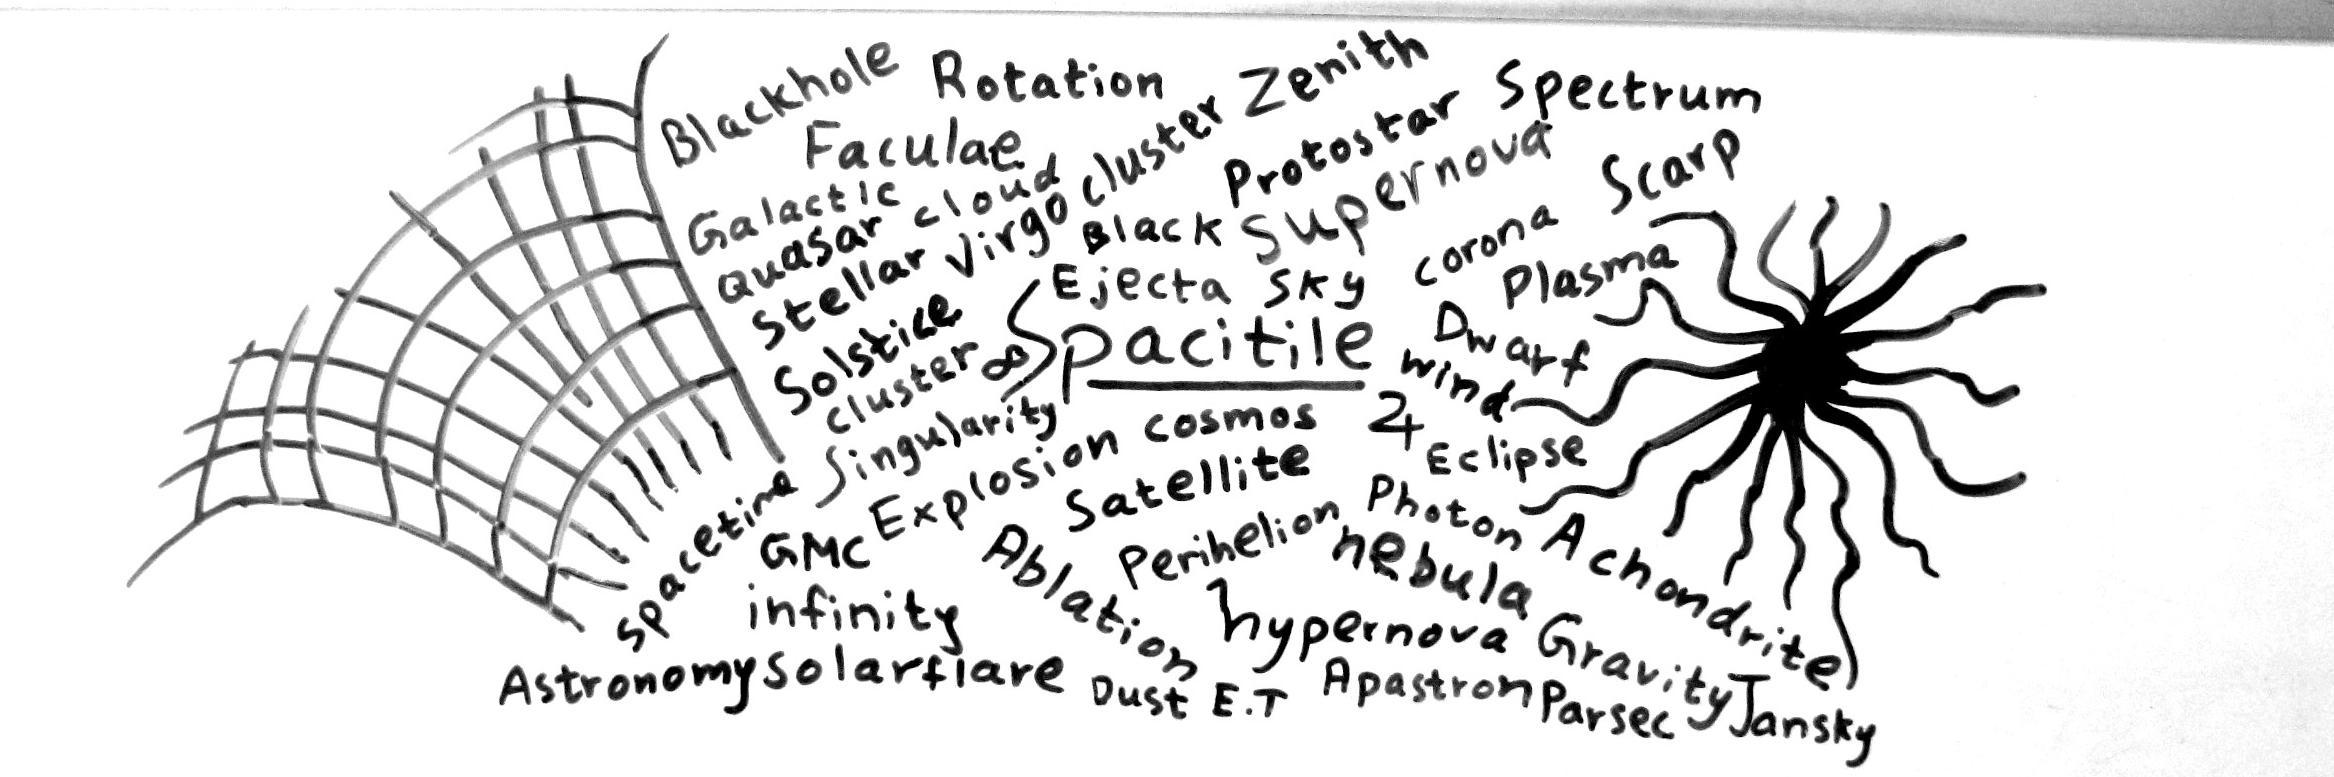 Blackhole
Rotation
Zenith
Spectrum
Faculae
Protostar
Supernova
Scarp
Galactic
cloud
Virgo cluster
Quasar
Black
corona
Stellar
Ejecta
Sky
Plasma
Solstice
Spacitile
Dwarf
cluster ∞
wind
Singularity
cosmos
♃
Eclipse
Spacetime
Explosion
Satellite
Photon
GMC
Ablation
Perihelion
nebula
Achondrite
infinity
hypernova
Gravity
Astronomy
solarflare
Dust
E.T
Apastron
Parsec
Jansky